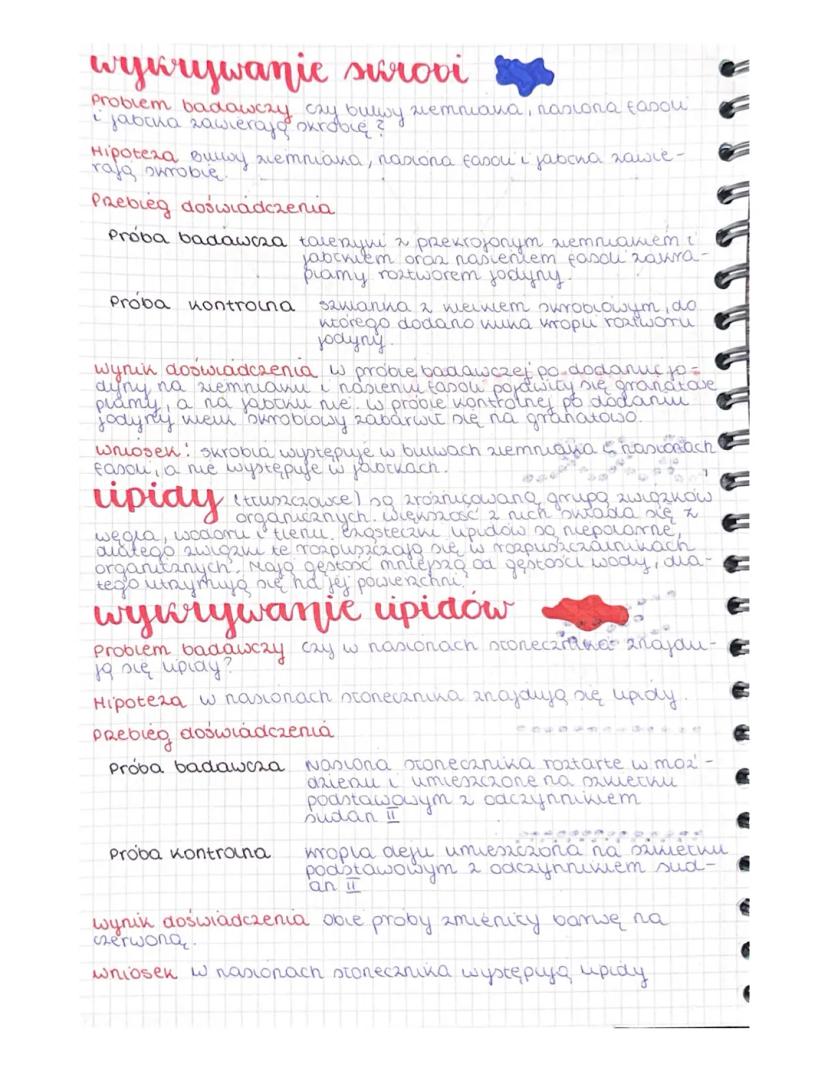 wykrywanie skrobi
Problem badawczy czy bulwy ziemniaka, nasiona fasoli
i jabłka zawierają skrobię?
Hipoteza Bulwy ziemniaka, nasiona fasoli i jabłka zawie-
rają skrobię.
Przebieg doświadczenia
Próba badawcza talerzyki z przekrojonym ziemniakiem i
jabłkiem oraz nasieniem fasoli zakra-
plamy roztworem jodyny.
Próba kontrolna szklanka z kleikiem skrobiowym, do
którego dodano kilka kropli roztworu
jodyny.
wynik doświadczenia w próbie badawczej po dodaniu jo-
dyny na ziemniaku i nasieniu fasoli pojawiły się granatowe
plamy, a na jabłku nie. w próbie kontrolnej po dodaniu
jodyny kleik skrobiowy zabarwił się na granatowo.
wniosek: skrobia występuje w bulwach ziemniaka i nasionach
fasoli, a nie występuje w jabłkach.
lipidy (tłuszczowce) są zróżnicowaną grupą związków
organicznych. większość z nich składa się z
węgla, wodoru i tlenu. cząsteczki lipidów są niepolarne,
dlatego związki te rozpuszczają się w rozpuszczalnikach
organicznych. Mają gęstość mniejszą od gęstości wody, dla-
tego utrzymują się na jej powierzchni.
wykrywanie lipidów
Problem badawczy czy w nasionach słonecznika znajdu-
ją się lipidy?
Hipoteza w nasionach słonecznika znajdują się lipidy.
Przebieg doświadczenia
Próba badawcza Nasiona słonecznika roztarte w moź-
dzierzu i umieszczone na szkiełku
podstawowym z odczynnikiem
sudan II
Próba kontrolna kropla oleju umieszczona na szkiełku
podstawowym z odczynnikiem sud-
an II
wynik doświadczenia obie próby zmieniły barwę na
czerwoną.
wniosek w nasionach słonecznika występują lipidy